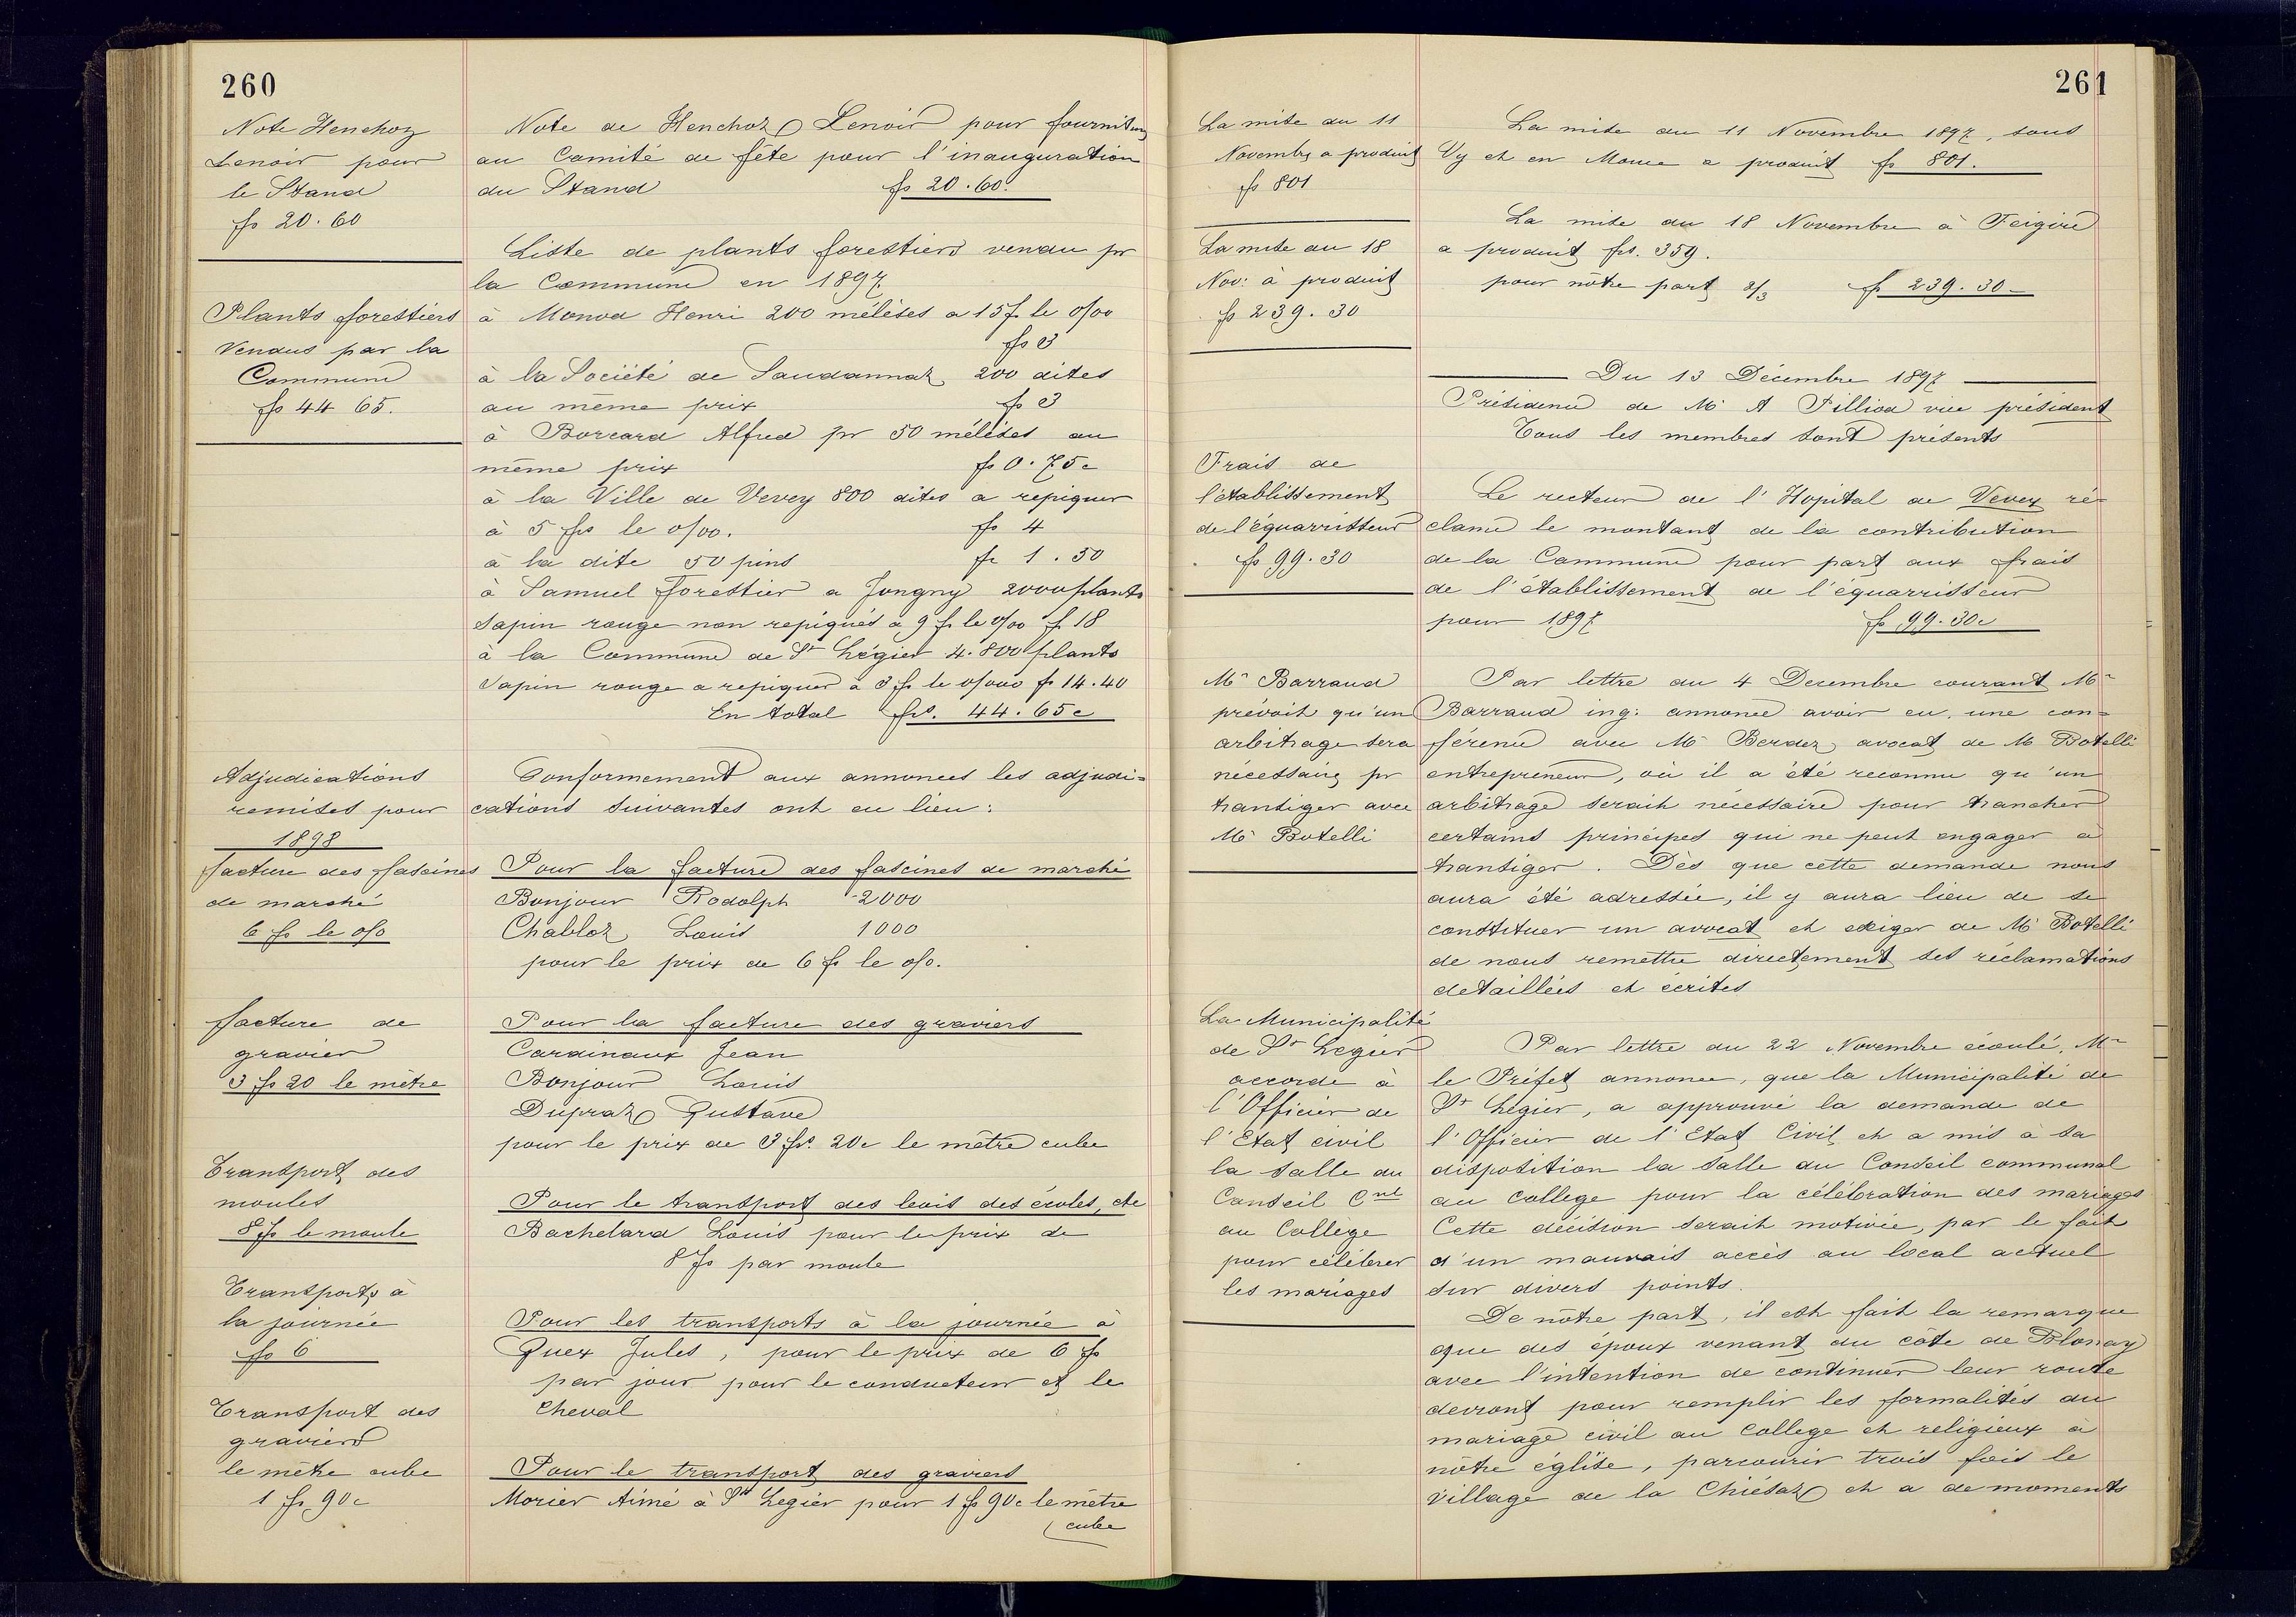 260
Note Henchoz
Lenoir pour
le Stand
fs 20.60
Plants forestiers
vendus par la
Commune
fs 44 65.
Adjudications
remises pour
1898
facture des fascines
de marché
6 fs le o/o
facture de
gravier
3 fs 20 le mètre
Transport des
moules
8 fs le moule
Transports à
la journée
fs 6
Transport des
graviers
le mètre cube
1 fr 90c
Note de Henchoz Lenoir pour fournitures
au Comité de fête pour l'inauguration
du Stand fs 20.60
Liste de plants forestiers vendu pr
la Commune en 1897
à Monod Henri 200 mélèses a 15 f. le o/oo
fs 3
à la Société de Saudannaz 200 dites
au même prix fs 3
à Borcard Alfred pr 50 mélèses au
même prix fs 0.75c
à la Ville de Vevey 800 dites a repiquer
à 5 frs le o/oo. fs 4
à la dite 50 pins fr 1.50
à Samuel Forestier a Jongny 2000 plants
sapin rouge non repiqués a 9 fr le o/oo f 18
à la Commune de St Légier 4.800 plants
sapin rouge a repiquer à 3 fr le o/ooo fr 14.40
En total frs. 44.65c
Conformement aux annonces les adjudi=
cations suivantes ont eu lieu:
Pour la facture des fascines de marché
Bonjour Rodolph 2000
Chabloz Louis 1000
pour le prix de 6 fr le o/o.
Pour la facture des graviers
Cardinaux Jean
Bonjour Louis
Dupraz Gustave
pour le prix de 3 frs. 20c le mètre cube
Pour le transport des bois des écoles, etc
Bachelard Louis pour le prix de
8 fs par moule
Pour les transports à la journée à
Guex Jules, pour le prix de 6 fs
par jour pour le conducteur et le
cheval
Pour le transport des graviers
Morier Aimé à St Legier pour 1 fs 90c le mètre
cube
261
La mise du 11
Novembre a produit
fs 801
La mise du 18
Nov: à produit
fs 239.30
Frais de
l'établissement
de l'équarrisseur
fs 99.30
Mr Barraud
prévoit qu'un
arbitrage sera
nécessaire pr
transiger avec
Mr Botelli
La Municipalité
de St Legier
accorde à
l'Officier de
l'Etat civil
la salle du
Conseil Cnal
au Collège
pour célébrer
les mariages
La mise du 11 Novembre 1897, sous
Vy et en a produit fs 801.
La mise du 18 Novembre à Feigire
a produit frs. 359.
pour nôtre part 2/3 fr 239.30
Du 13 Décembre 1897
Présidence de Mr A Pilliod vice président
Tous les membres sont présents
Le recteur de l'Hopital de Vevey ré=
clame le montant de la contribution
de la Commune pour part aux frais
de l'établissement de l'équarrisseur
pour 1897 fs 99.30c
Par lettre du 4 Decembre courant Mr
Barraud ing: annonce avoir eu une con=
férence avec Mr Berdez, avocat de Mr Botelli
entrepreneur, où il a été reconnu qu'un
arbitrage serait nécessaire pour trancher
certains principes qui ne peut engager a
transiger. Dès que cette demande nous
aura été adressée, il y aura lieu de se
constituer un avocat et exiger de Mr Botelli
de nous remettre directement ses réclamations
detaillées et écrites
Par lettre du 22 Novembre écoulé, Mr
le Préfet annonce, que la Municipalité de
St Légier, a approuvé la demande de
l'Officier de l'Etat Civil et a mis à sa
disposition la salle du Conseil communal
au college pour la célébration des mariages
Cette décision serait motivée, par le fait
d'un mauvais accès au local actuel
sur divers points.
De nôtre part, il est fait la remarque
que des époux venant du côte de Blonay
avec l'intention de continuer leur route
devront pour remplir les formalités du
mariage civil au College et religieux à
nôtre église, parcourir trois fois le
village de la Chiésaz et a de moments